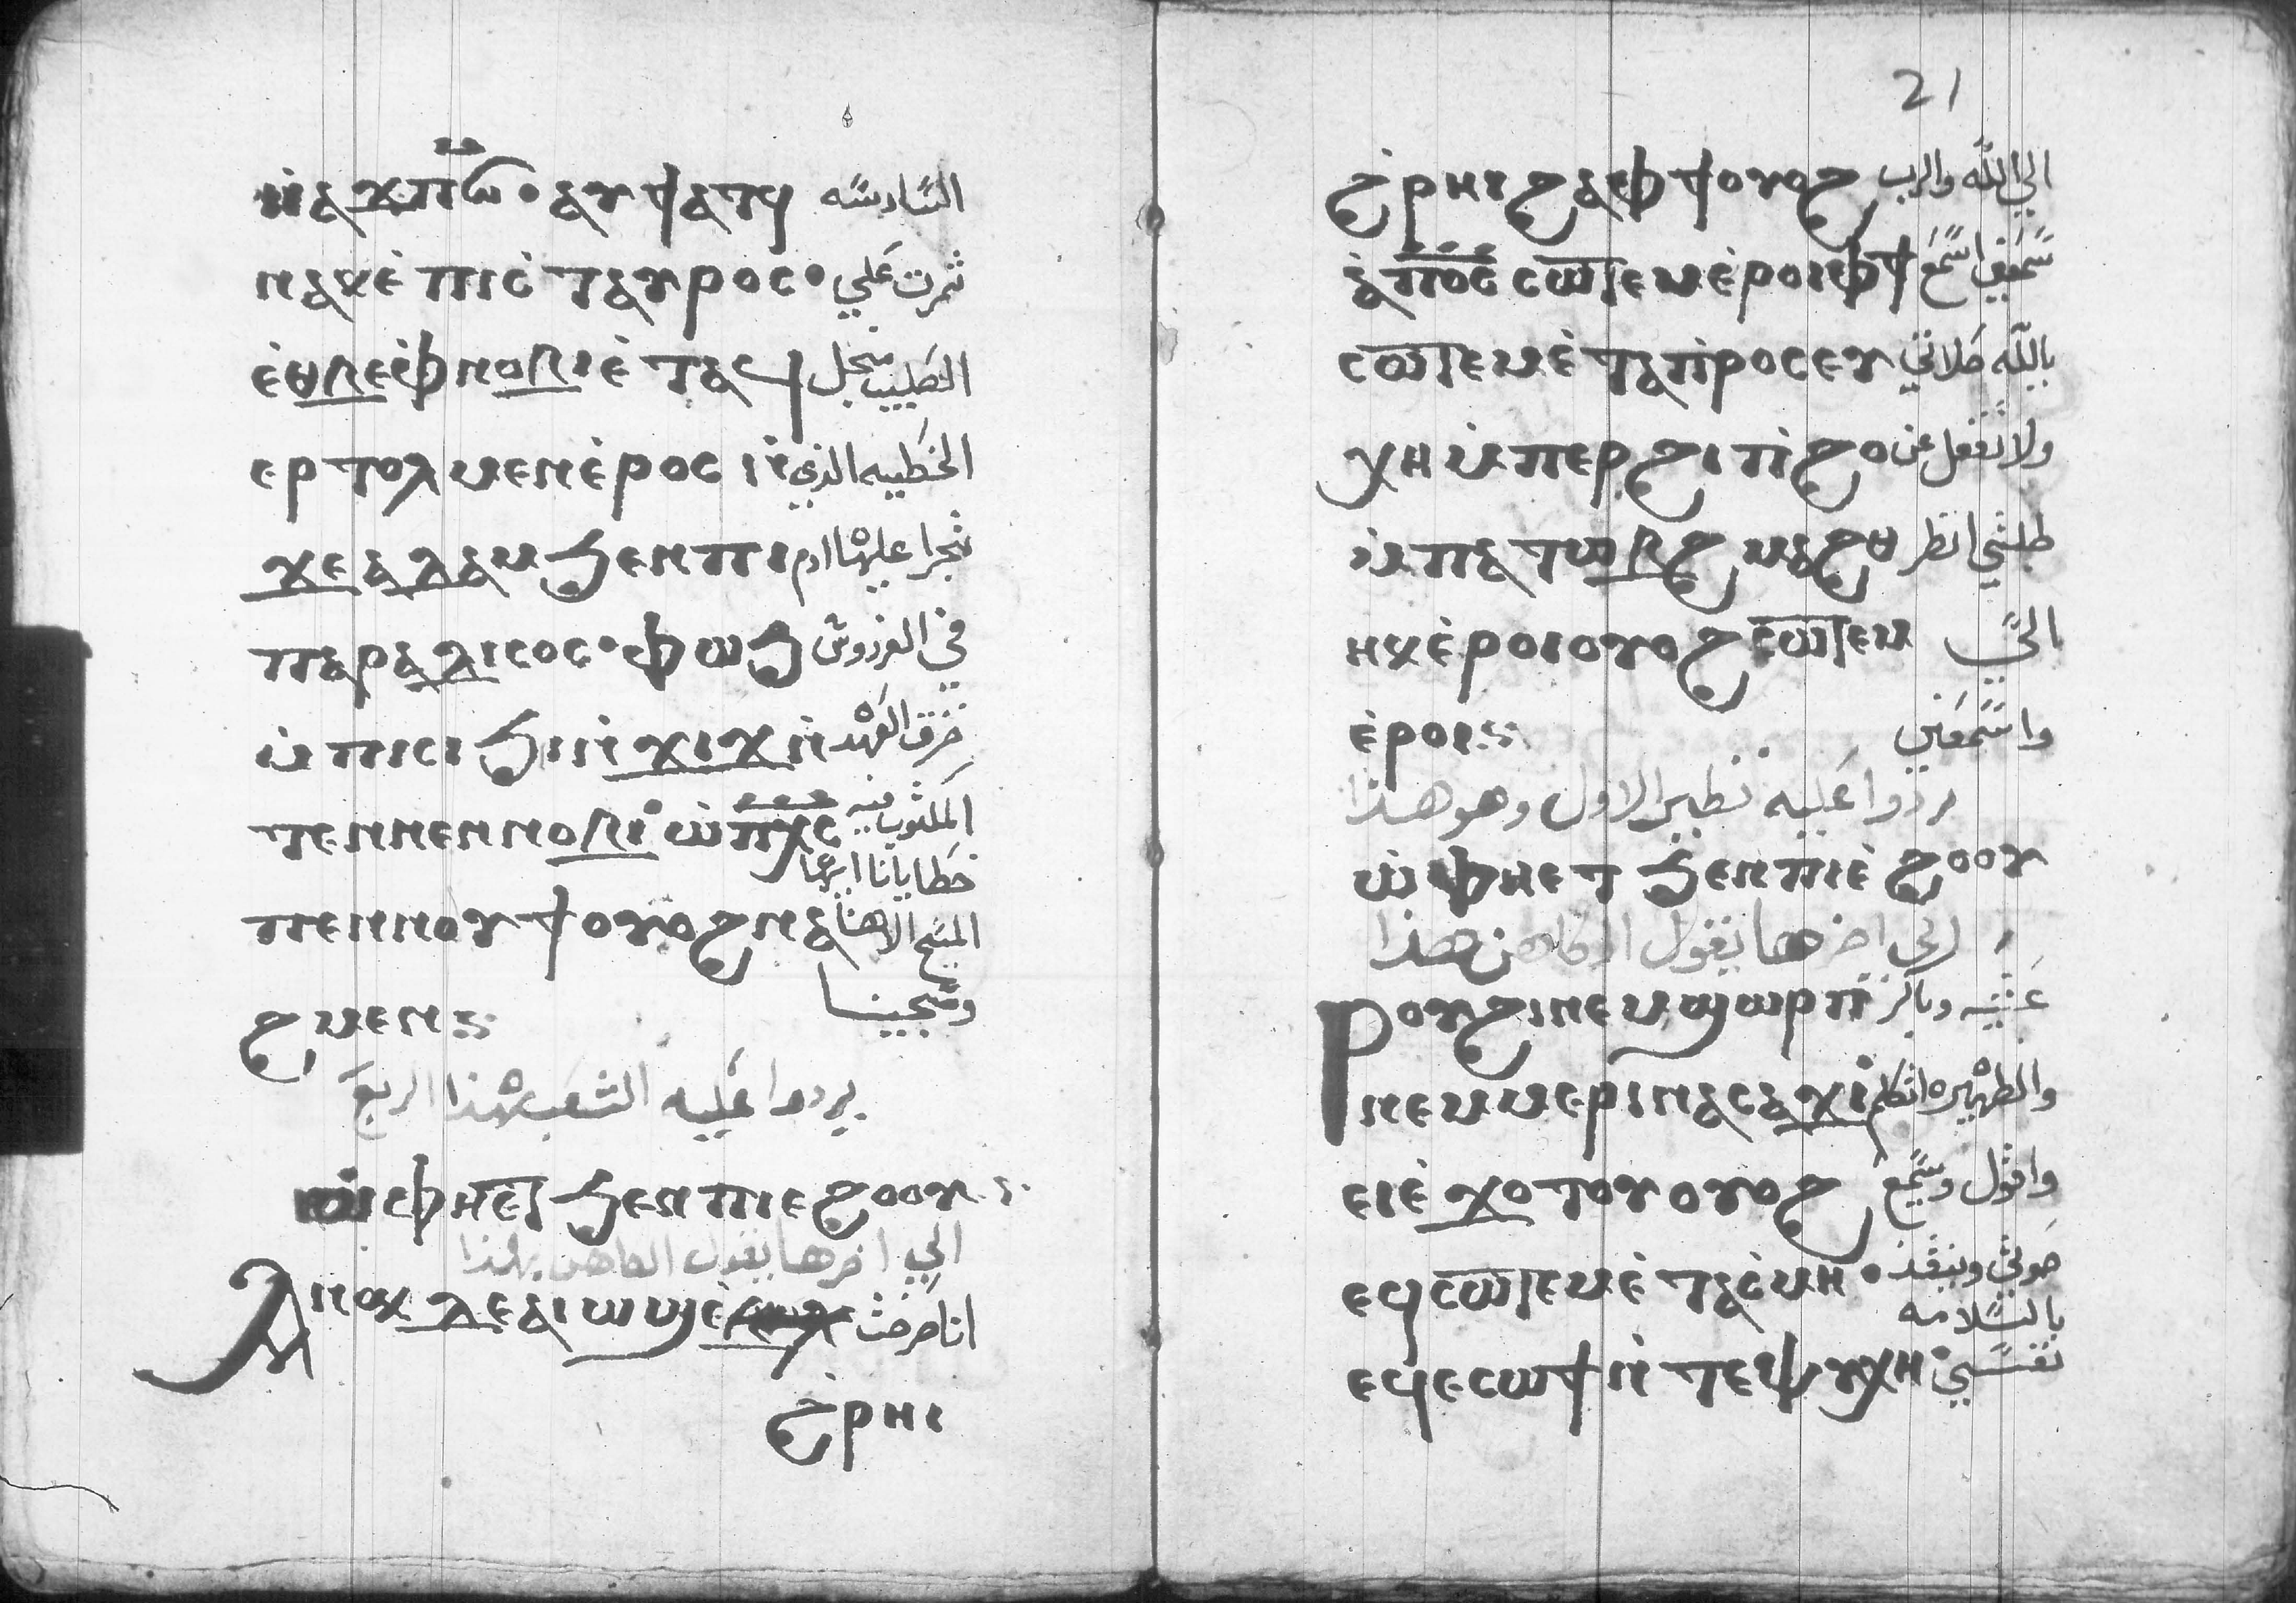 ⲛ̀ⲁϫⲡⲱ̅· ⲁⲩϯⲁⲧϥ السادسه
ⲛⲁⲕⲉ̀ ⲡⲓⲥ̀ⲧⲁⲩⲣⲟⲥ· ثمرت علي
ⲉ̀ⲑⲃⲉⲫ̀ⲛⲟⲃⲓⲉ̀ⲧⲁϥ الصليب منجل
ⲉⲣⲧⲟⲗⲙⲉⲛⲉ̀ⲣⲟⲥ ⲛ̀ الخطيه الذي
ϫⲉⲁⲇⲁⲙϧⲉⲛⲡⲓ تجرا عليها ادم
ⲡⲁⲣⲁⲇⲓⲥⲟⲥ· ⲫⲱϧ في الفردوس
ⲙ̀ⲡⲓⲥⲓϧⲓⲛ̀ϫⲓϫⲛ̀ خرق العهد
ⲧⲉⲛⲛⲉⲛⲛⲟⲃⲓ ⲱ̀ⲡ̅ⲭ̅ⲥ̅ المكتوب فيه
خطايانا ايها
ⲡⲉⲛⲛⲟⲩϯⲟⲩⲟϩⲛⲁ المسيح الاهنا
ϩⲙⲉⲛ ونجينا
يردوا عليه الشعب بهذا الربع
ⲱ̀ⲫⲏⲉⲧϧⲉⲛⲡⲓⲉϩⲟⲟⲩ
الي اخرها يقول الكاهن بهذا
ⲁⲛⲟⲕ ⲇⲉⲁⲓⲱϣⲉ̀ انا صرخت
ϩ̀ⲣⲏⲓ
21
ϩ̀ⲣⲏⲓϩⲁⲫϯⲟⲩⲟϩ الي الله والرب
ⲁ̀ⲡ̅ⲟ̅ⲥ̅ ⲥⲱⲧⲉⲙⲉ̀ⲣⲟⲓⲫϯ سمعني اسمع
ⲥⲱⲧⲉⲙⲉ̀ⲧⲁⲡ̀ⲣⲟⲥⲉⲩ ياالله صلاتي
ⲭⲏⲙ̀ⲡⲉⲣϩⲓⲡ̀ϩⲟ ولا تغفل عن
ⲙ̀ⲡⲁⲧⲱⲃϩ ⲙⲁϩⲑ طلبتي انظر
ⲏⲕⲉ̀ⲣⲟⲓⲟⲩⲟϩ ⲥⲱⲧⲉⲙ الي
ⲉ̀ⲣⲟⲓ واسمعني
يردوا عليه نظير الاول وهو هذا
ⲱ̀ⲫⲏⲉⲧ ϧⲉⲛⲡⲓⲉ̀ϩⲟⲟⲩ
الي اخرها يقول الكاهن هذا
ⲣⲟⲩϩⲓⲛⲉⲙϣⲱⲣⲡ عشيه وباكر
ⲛⲉⲙⲙⲉⲣⲓⲛⲁⲥⲁϫⲓ والظهيره اتكلم
ⲉⲓⲉ̀ϫⲟⲧⲟⲩⲟⲩⲟϩ واقول ويسمع
ⲉϥⲥⲱⲧⲉⲙⲉ̀ⲧⲁⲥ̀ⲙⲏ· صوتي وينقذ
بالسلامه
ⲉϥⲉⲥⲱϯⲛ̀ⲧⲉⲯⲩⲭⲏ نفسي